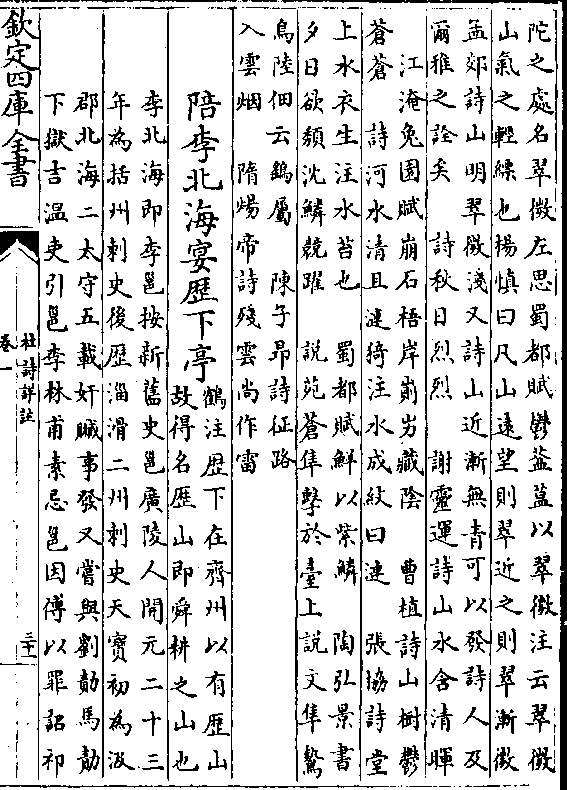 陀之處名翠微左思蜀都賦鬱葢葢以翠微注云翠微
山氣之輕縹也楊慎曰凡山遠望則翠近之則翠漸微
孟郊詩山明翠微淺又詩山近漸無青可以發詩人及
爾雅之詮矣　詩秋日烈烈　謝靈運詩山水含清暉
江淹兔園賦崩石梧岸崱屴藏陰　曹植詩山樹鬱
蒼蒼　詩河水清且漣猗注水成紋曰漣　張協詩堂
上水衣生注水苔也　蜀都賦鮮以紫鱗　陶弘景書
夕日欲頹沈鱗競躍　說苑蒼隼擊於臺上說文隼鷙
鳥陸佃云鷂屬　陳子昻詩征路
入雲烟　隋煬帝詩殘雲尚作雷
陪李北海宴歷下亭
鶴注歷下在齊州以有歷山
故得名歷山即舜耕之山也
李北海即李邕按新舊史邕廣陵人開元二十三
年為括州刺史後歷淄滑二州刺史天寳初為汲
郡北海二太守五載奸贓事發又嘗與劉勣馬勣
下獄吉溫吏引邕李林甫素忌邕因傅以罪詔祁
欽定四庫全書
杜詩詳註
卷一
三十